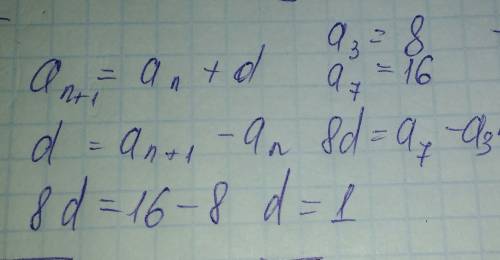 a₃ = 8
aₙ₊₁ = aₙ + d a₇ = 16
d = aₙ₊₁ - aₙ 8d = a₇ - a₃
8d = 16 - 8 d = 1